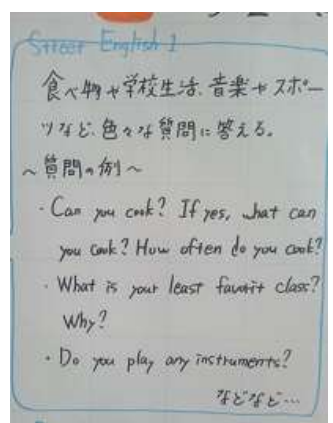 Street English 1
食べ物や学校生活、音楽やスポー
ツなど、色々な質問に答える。
～質問の例～
・Can you cook? If yes, what can
you cook? How often do you cook?
・What is your least favorit class?
Why?
・Do you play any instruments?
などなど…